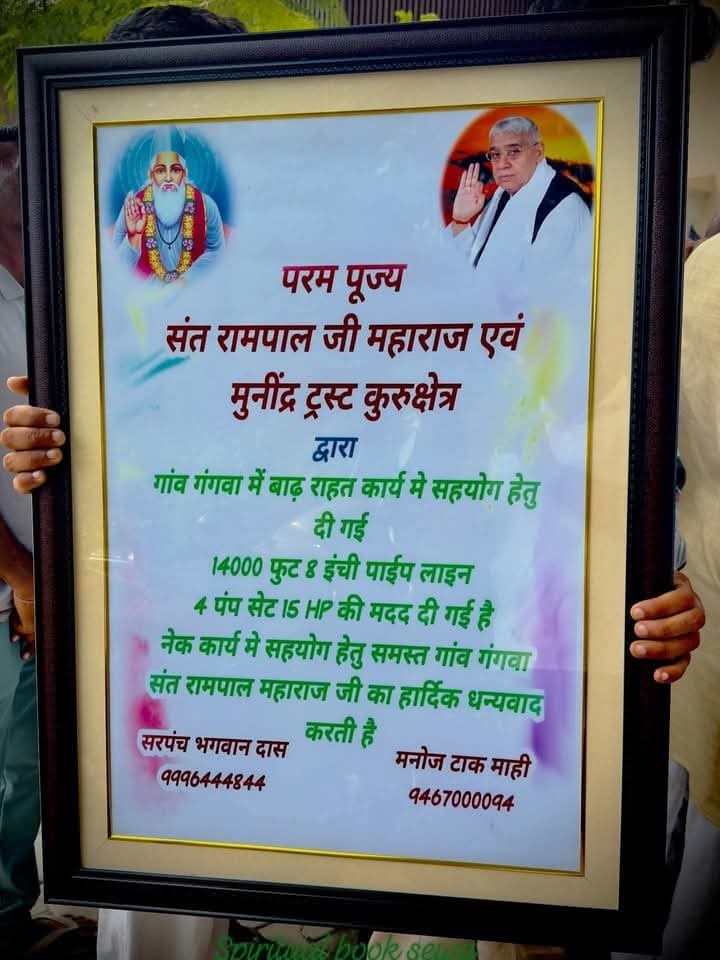 परम पूज्य
संत रामपाल जी महाराज एवं
मुनींद्र ट्रस्ट कुरुक्षेत्र
द्वारा
गांव गंगवा में बाढ़ राहत कार्य मे सहयोग हेतु
दी गई
14000 फुट 8 इंची पाईप लाइन
4 पंप सेट 15 HP की मदद दी गई है
नेक कार्य मे सहयोग हेतु समस्त गांव गंगवा
संत रामपाल महाराज जी का हार्दिक धन्यवाद
करती है
सरपंच भगवान दास
9996444844
मनोज टाक माही
9467000094
Spiritual book sewa